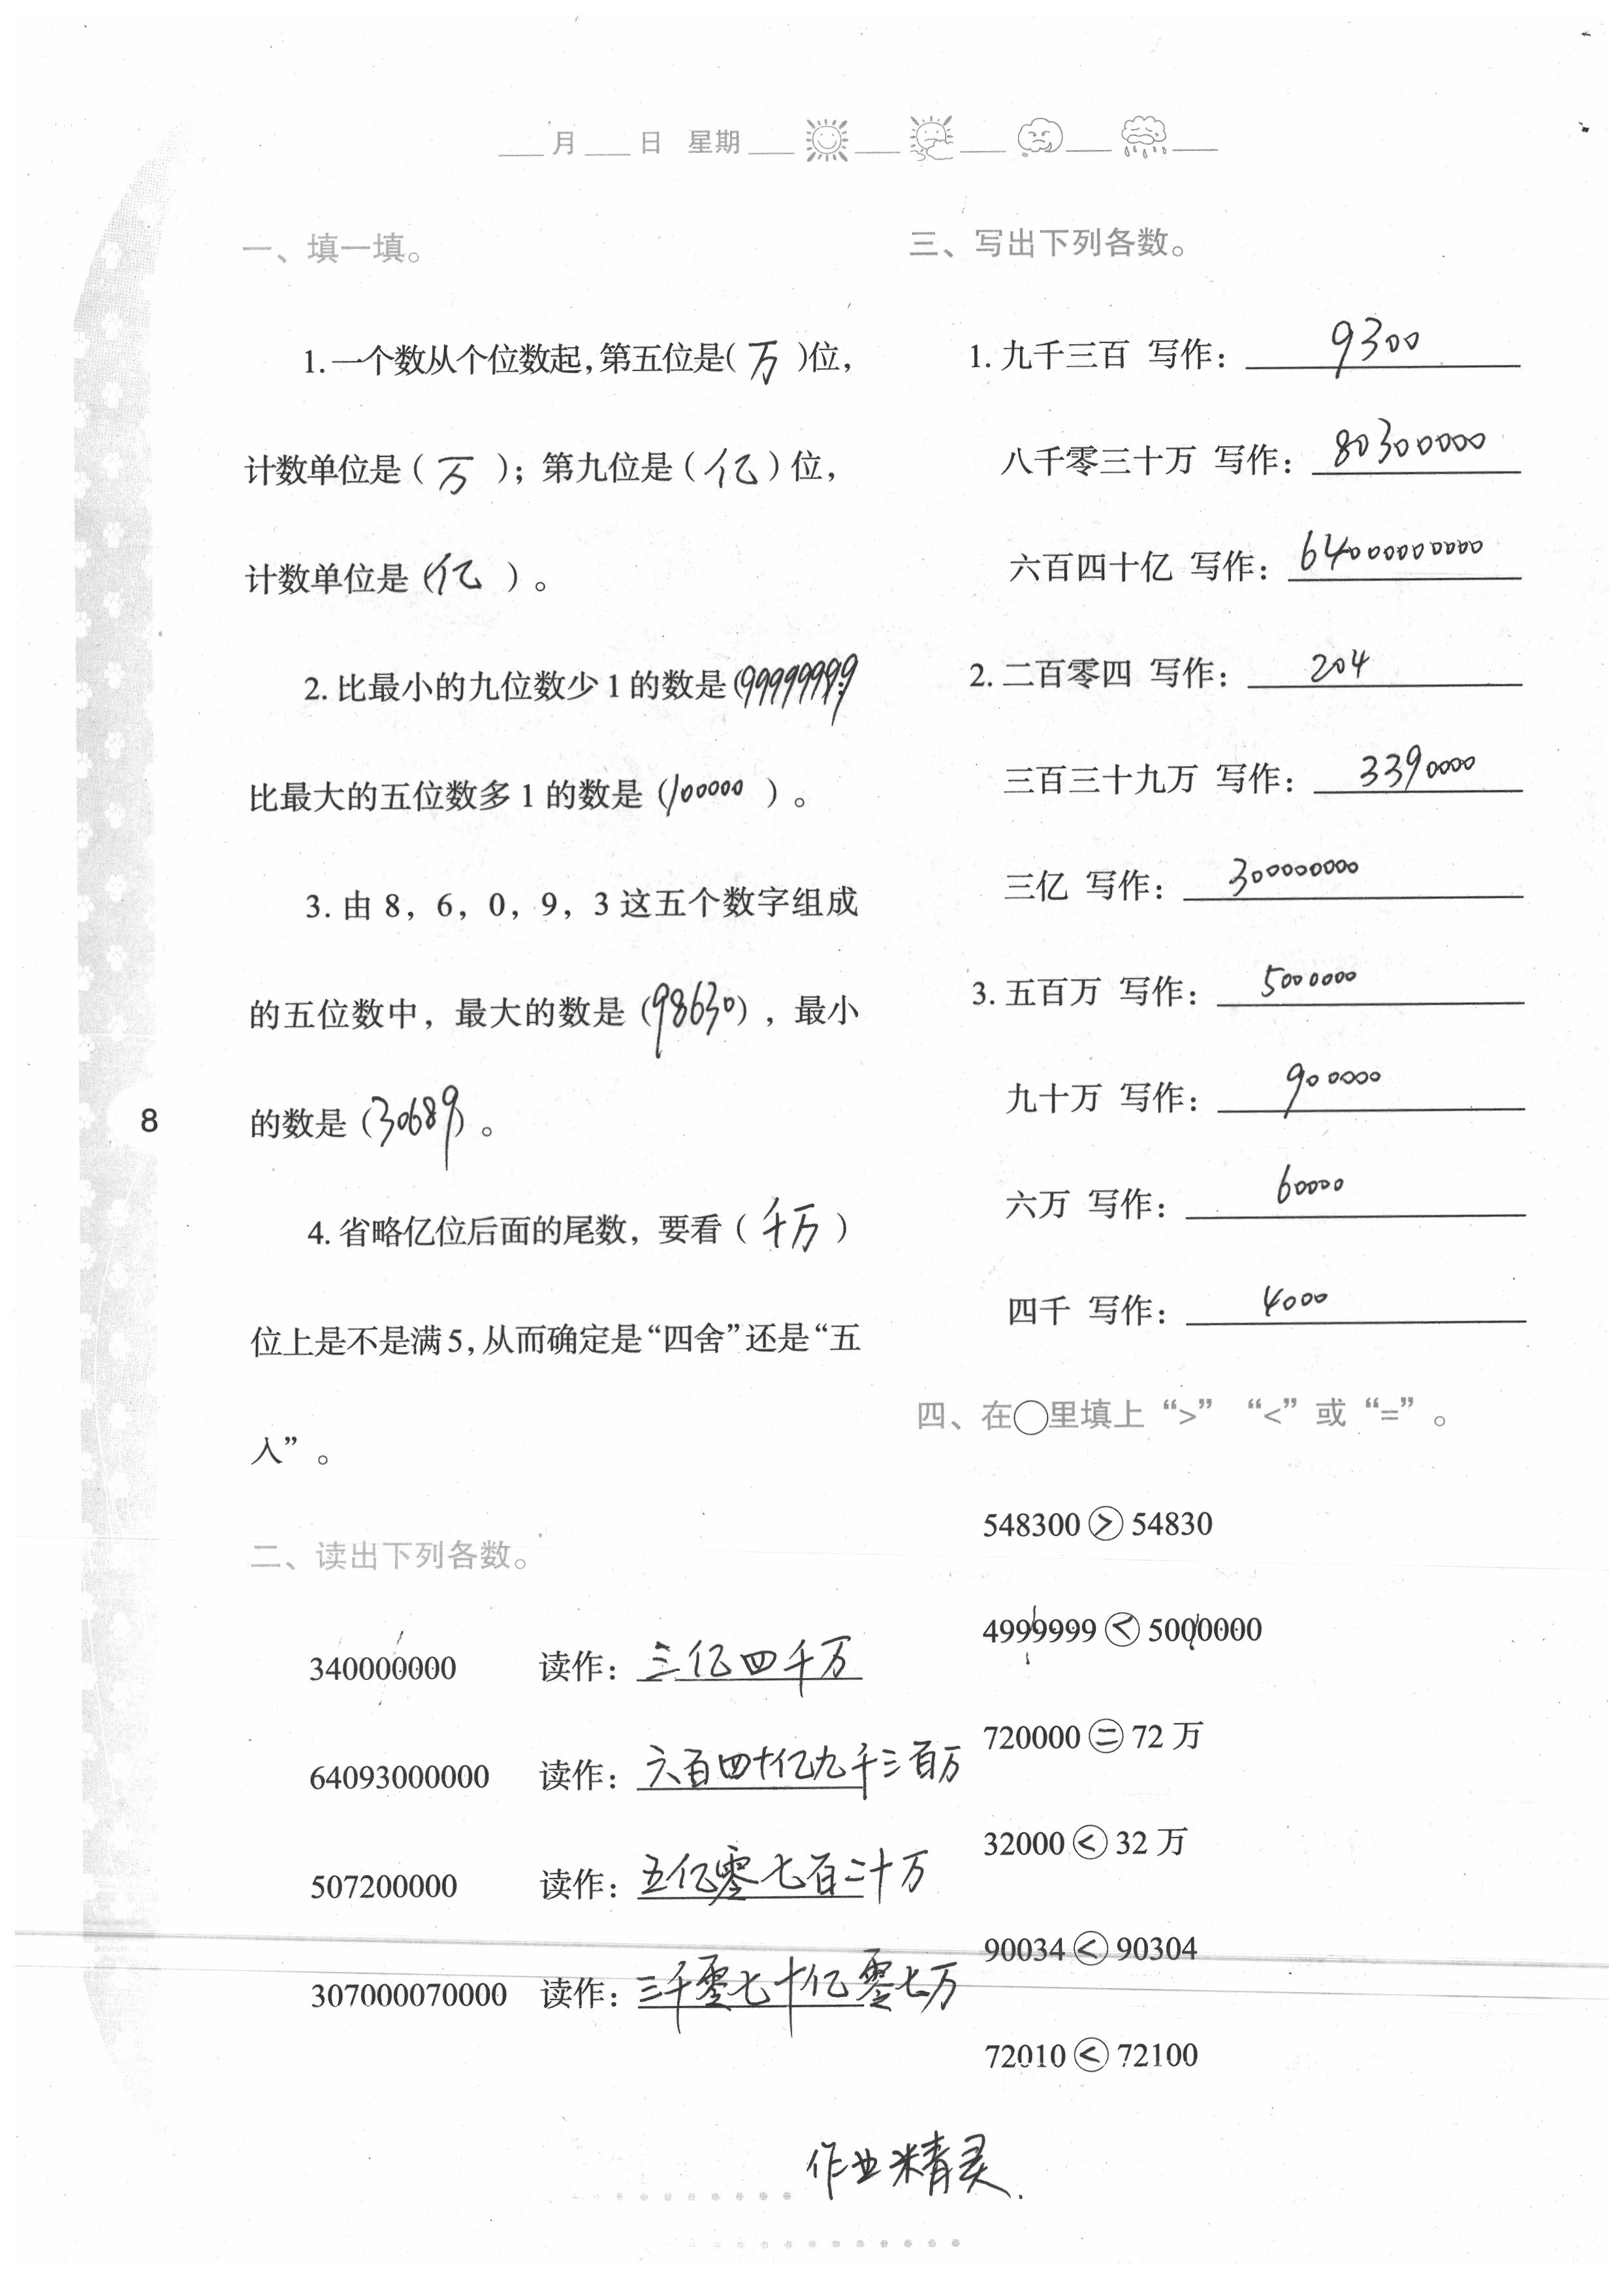 ___月___日 星期___ ___ ___ ___ ___
一、填一填。
1. 一个数从个位数起,第五位是(万)位,
计数单位是(万);第九位是(亿)位,
计数单位是(亿)。
2. 比最小的九位数少1的数是(99999999
比最大的五位数多1的数是(100000)。
3. 由8,6,0,9,3这五个数字组成
的五位数中,最大的数是(98630),最小
的数是(30689)。
4. 省略亿位后面的尾数,要看(千万)
位上是不是满5,从而确定是“四舍”还是“五
入”。
二、读出下列各数。
340000000 读作:三亿四千万
64093000000 读作:六百四十亿九千三百万
507200000 读作:五亿零七百二十万
307000070000 读作:三千零七十亿零七万
8
三、写出下列各数。
1. 九千三百 写作:9300
八千零三十万 写作:80300000
六百四十亿 写作:64000000000
2. 二百零四 写作:204
三百三十九万 写作:3390000
三亿 写作:300000000
3. 五百万 写作:5000000
九十万 写作:900000
六万 写作:60000
四千 写作:4000
四、在○里填上“>”“<”或“=”。
548300 > 54830
4999999 < 5000000
720000 = 72万
32000 < 32万
90034 < 90304
72010 < 72100
作业精灵.